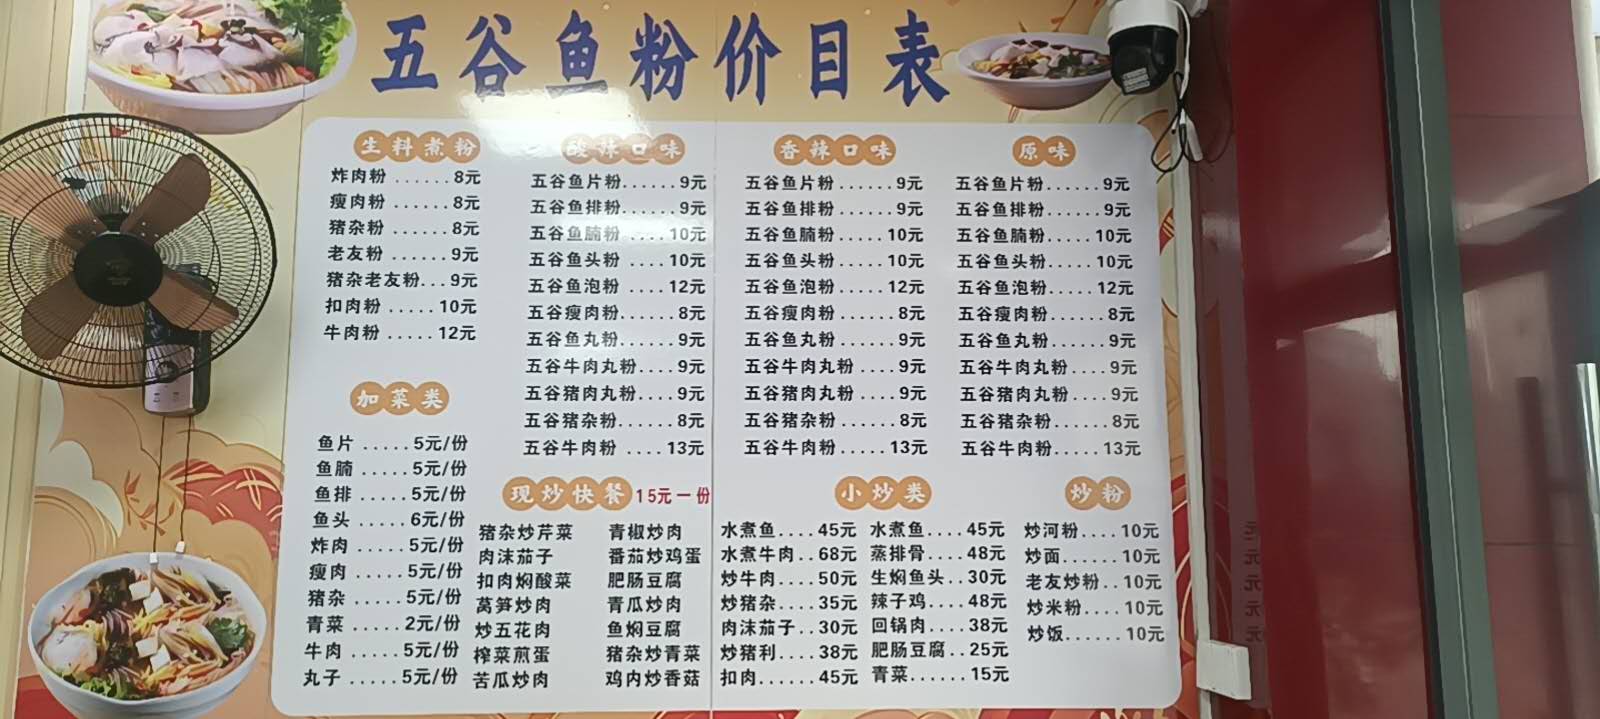 五谷鱼粉价目表
生料煮粉
炸肉粉......8元
瘦肉粉......8元
猪杂粉......8元
老友粉......9元
猪杂老友粉...9元
扣肉粉.....10元
牛肉粉.....12元
加菜类
鱼片.....5元/份
鱼腩.....5元/份
鱼排.....5元/份
鱼头.....6元/份
炸肉.....5元/份
瘦肉.....5元/份
猪杂.....5元/份
青菜.....2元/份
牛肉.....5元/份
丸子.....5元/份
酸辣口味
五谷鱼片粉......9元
五谷鱼排粉......9元
五谷鱼腩粉....10元
五谷鱼头粉....10元
五谷鱼泡粉....12元
五谷瘦肉粉......8元
五谷鱼丸粉......9元
五谷牛肉丸粉....9元
五谷猪肉丸粉....9元
五谷猪杂粉......8元
五谷牛肉粉....13元
香辣口味
五谷鱼片粉......9元
五谷鱼排粉......9元
五谷鱼腩粉.....10元
五谷鱼头粉.....10元
五谷鱼泡粉.....12元
五谷瘦肉粉......8元
五谷鱼丸粉......9元
五谷牛肉丸粉....9元
五谷猪肉丸粉....9元
五谷猪杂粉......8元
五谷牛肉粉.....13元
原味
五谷鱼片粉......9元
五谷鱼排粉......9元
五谷鱼腩粉.....10元
五谷鱼头粉.....10元
五谷鱼泡粉.....12元
五谷瘦肉粉......8元
五谷鱼丸粉......9元
五谷牛肉丸粉....9元
五谷猪肉丸粉....9元
五谷猪杂粉......8元
五谷牛肉粉.....13元
现炒快餐 15元一份
猪杂炒芹菜
肉沫茄子
扣肉焖酸菜
莴笋炒肉
炒五花肉
榨菜煎蛋
苦瓜炒肉
青椒炒肉
番茄炒鸡蛋
肥肠豆腐
青瓜炒肉
鱼焖豆腐
猪杂炒青菜
鸡内炒香菇
小炒类
水煮鱼....45元
水煮牛肉..68元
炒牛肉....50元
炒猪杂....35元
肉沫茄子..30元
炒猪利....38元
扣肉......45元
水煮鱼....45元
蒸排骨....48元
生焖鱼头..30元
辣子鸡....48元
回锅肉....38元
肥肠豆腐..25元
青菜......15元
炒粉
炒河粉....10元
炒面......10元
老友炒粉..10元
炒米粉....10元
炒饭......10元
元
元
元
元
元